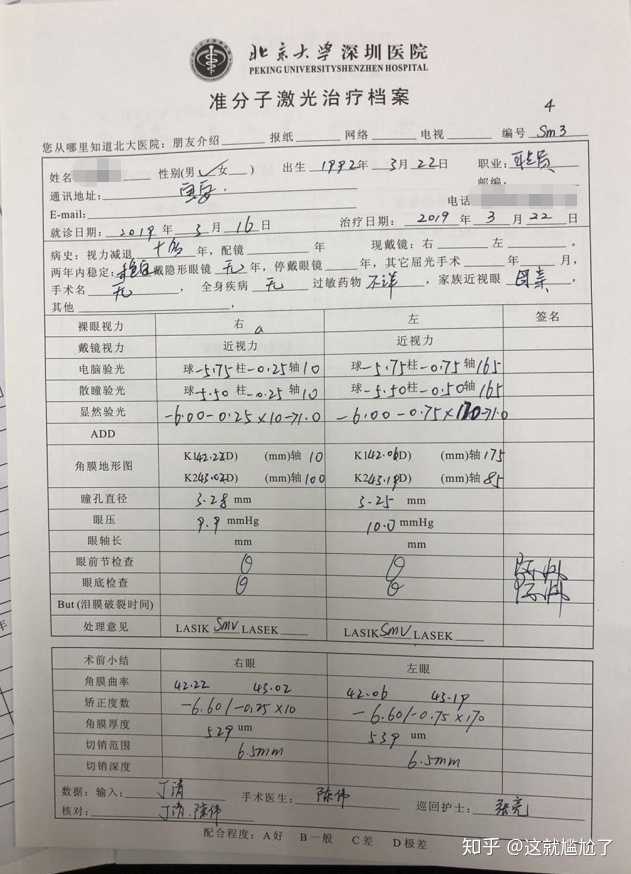 北京大学深圳医院
PEKING UNIVERSITYSHENZHEN HOSPITAL
准分子激光治疗档案
4
您从哪里知道北大医院：朋友介绍 报纸 网络 电视 编号 Sm3
姓名 性别(男✓女 ) 出生 1992年 3月22日 职业：
通讯地址： 邮编：
E-mail: 电话
就诊日期：2019年 3月 16日 治疗日期：2019年 3月 22日
病史：视力减退 十多 年，配镜 年 现戴镜：右 左 ，
两年内稳定： 戴隐形眼镜 无 年，停戴眼镜 年，其它屈光手术 年 月，
手术名 无 ，全身疾病 无 过敏药物 不详 ，家族近视眼 母亲 ，
其他 ，
裸眼视力 右 左 签名
戴镜视力 近视力 近视力
电脑验光 球-5.75柱-0.25轴10 球-5.75柱-0.75轴165
散瞳验光 球-5.50柱-0.25轴10 球-5.50柱-0.50轴165
显然验光 -6.00-0.25×10→1.0 -6.00-0.75×170→1.0
ADD
角膜地形图 K1(42.22D) (mm)轴 10 K1(42.06D) (mm)轴 175
K2(43.02D) (mm)轴 100 K2(43.19D) (mm)轴 85
瞳孔直径 3.28 mm 3.25 mm
眼压 9.9 mmHg 10.0 mmHg
眼轴长 mm mm
眼前节检查
眼底检查
But (泪膜破裂时间)
处理意见 LASIK SMV LASEK LASIK SMV LASEK
术前小结 右眼 左眼
角膜曲率 42.22 43.02 42.06 43.19
矫正度数 -6.60/-0.25×10 -6.60/-0.75×170
角膜厚度 529 um 539 um
切销范围 6.5mm 6.5mm
切销深度
数据：输入： 丁清 手术医生： 陈伟 巡回护士：
核对： 丁清.陈伟
配合程度：A好 B一般 C差 D极差
知乎 @这就尴尬了